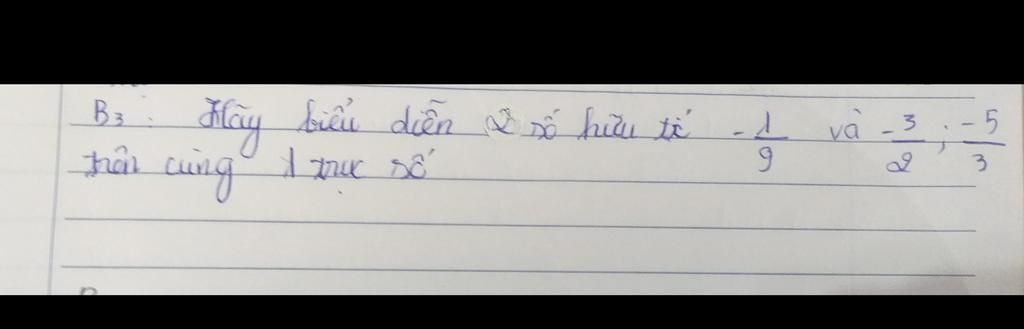 B3: Hãy biểu diễn 2 số hữu tỉ -1/9 và -3/2; -5/3
trên cùng 1 trục số